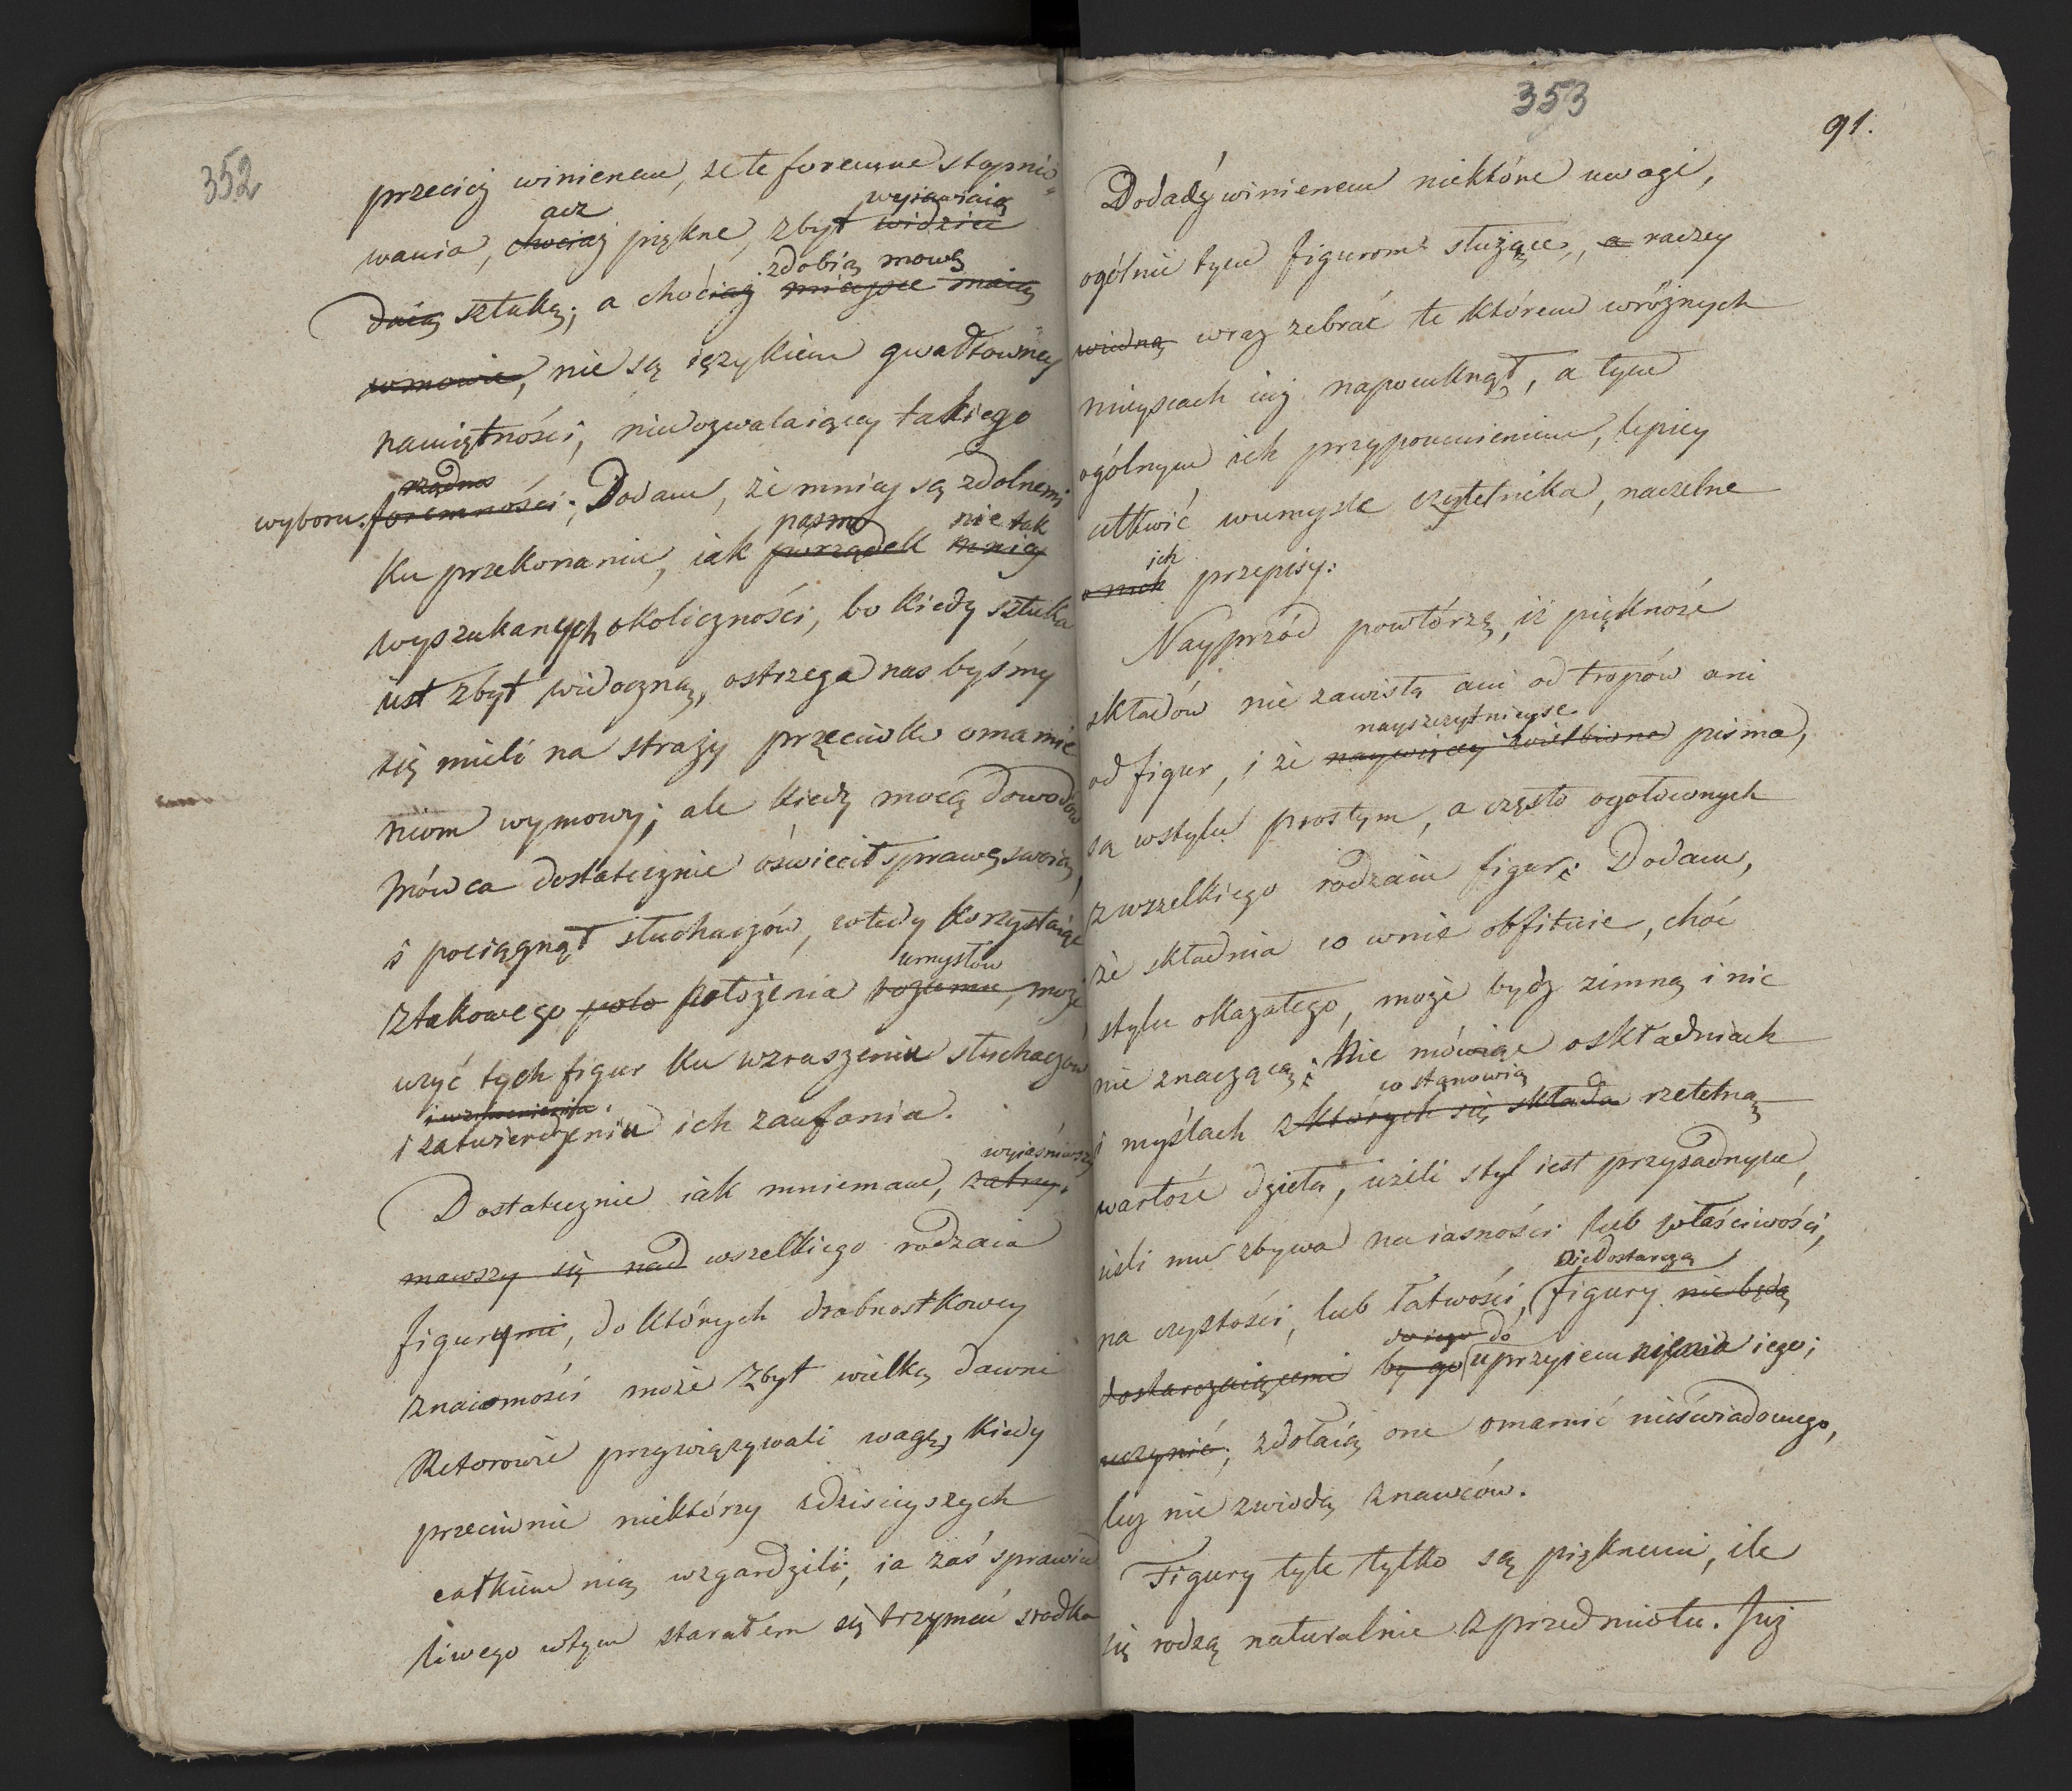 352
przeciéż winienem, że te foremne stopnio-
acz wyiawiaią
wania, chociaż piękne, zbyt widzieć
zdobią mowę
daią sztukę; a chociaż mieysce maią
w mowie, nie są ięzykiem gwałtowney
namiętności, niedozwalaiącey takiego
rządne
wyboru. foremności; Dodam, że mniey są zdolnemi
pasmo nie tak
ku przekonaniu, iak porządek mniey
wyszukanych okoliczności, bo kiedy sztuka
iest zbyt widoczną, ostrzega nas byśmy
się mieli na straży przeciwko omamie
niom wymowy; ale kiedy mocą dowodów
mówca dostatecznie oświecił sprawę swoią,
i pociągnął słuchaczów, wtedy korzystaiąc
umysłów
z takowego poło położenia rozumu, może
użyć tych figur ku wzruszeniu słuchaczów
i wzmocnienia
i zatwierdzeniu ich zaufania.
wyiaśniwszy
Dostatecznie iak mniemam, zatrzy-
mawszy się nad wszelkiego rodzaia
figurami, do których drobnostkowey
znaiomości może zbyt wielką dawni
Retorowie przywięzywali wagę, kiedy
przeciwnie niektórzy zdzisieyszych
całkiem nią wzgardzili; ia zaś sprawied
liwego w tym starałem się trzymać srodka
353
91.
Dodadź winienem niektóre uwagi,
ogólnie tym figurom służące, a raczey
wiedną wraz zebrać te którem w różnych
mieyscach iuż napomknął, a tym
ogólnym ich przypomnieniem, lepiey
utkwić w umyśle czytelnika, naczelne
ich
o nich przepisy:
Nayprzód powtórzę, iż piękność
składów nie zawisła ani od tropów ani
nayszczytnieysze
od figur, i że naywięcey wielbione pisma,
są w stylu prostym, a często ogołoconych
z wszelkiego rodzaiu figur; Dodam,
że składnia co w nie obfituie, choć
stylu okazałego, może bydź zimną i nic
nie znaczącą; Nie mówiąc o składniach
co stanowią
i myślach z których się składa rzetelną
wartość dzieła, ieżeli styl iest przysadnym,
ieśli mu zbywa na iasności lub właściwości,
niedostarczą
na czystości, lub łatwości, figury nie będą
do iego do
dostarczaiącemi by go uprzyiemnienia iego;
uczynić; zdołaią one omamić nieświadomego,
lecz nie zwiodą znawców.
Figury tyle tylko są pięknemi, ile
się rodzą naturalnie z przedmiotu. Już